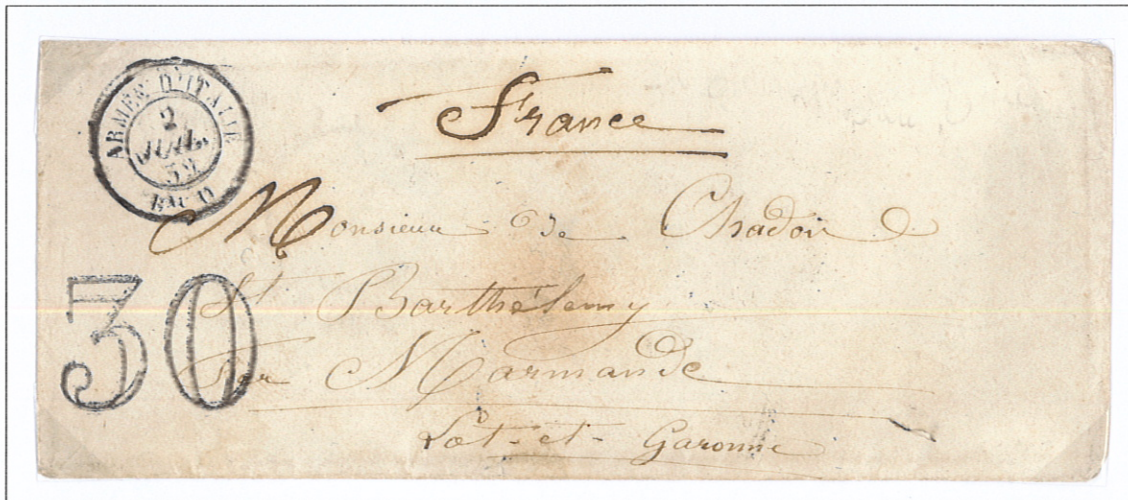 ARMÉE D'ITALIE
2
JUIL.
59
France
Monsieur de Chadois
St Barthélemy
30
par Marmande
Lot-et-Garonne